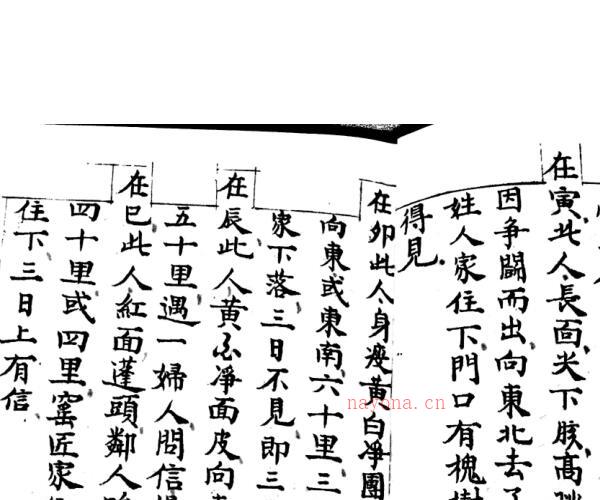 在寅此人長面尖下胲高
因爭鬪而出向東北去
姓人家住下門口有槐樹
得見
在卯此人身瘦黄白凈團
向東或東南六十里三
家下落三日不見即三
在辰此人黄不凈面皮向
五十里遇一婦人問信
在巳此人紅面蓬頭鄰人
四十里或四里窰匠家
住下三日上有信
nayona.cn